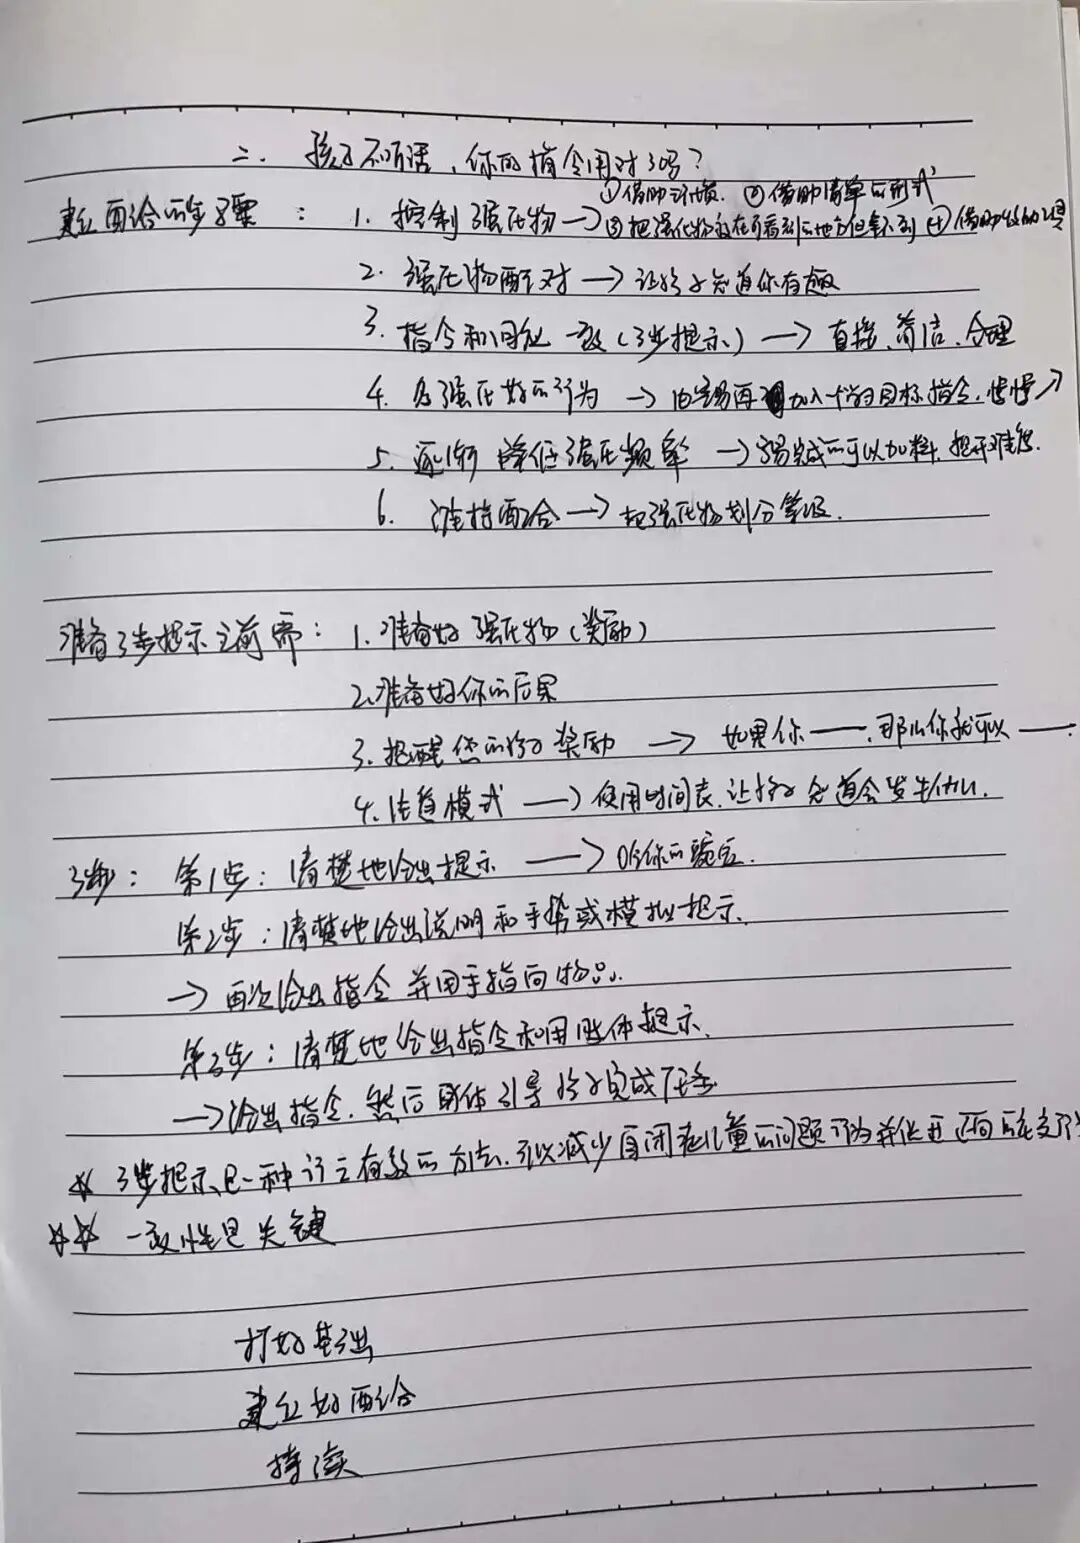 二、孩子不听话,你的指令用对了吗?
①借助环境. ②借助清单的形式
建立配合的步骤: 1. 控制强化物→③把强化物放在可看到的地方但拿不到 ④借助
2. 强化物配对→让孩子知道你有趣
3. 指令和回应一致(3步提示)→直接、简洁、合理
4. 多强化好的行为→由易再加入一个学习目标指令,慢慢↗
5. 逐渐降低强化频率→易完成的可以加料,提升难度.
6. 维持配合→把强化物划分等级.
准备3步提示之前需: 1. 准备好强化物(奖励)
2. 准备好你的后果
3. 提醒您的孩子奖励→如果你——,那么你就可以——.
4. 模式→使用时间表,让孩子知道会发生什么.
3步: 第1步:清楚地给出提示→
第2步:清楚地给出说明和手势或模拟提示.
→再次给出指令并用手指向物品.
第3步:清楚地给出指令和用肢体提示.
→给出指令,然后身体引导孩子完成任务
☆ 3步提示是一种行之有效的方法,可以减少自闭症儿童的问题行为并促进
☆☆ 一致性是关键
打好基础
建立好配合
持续